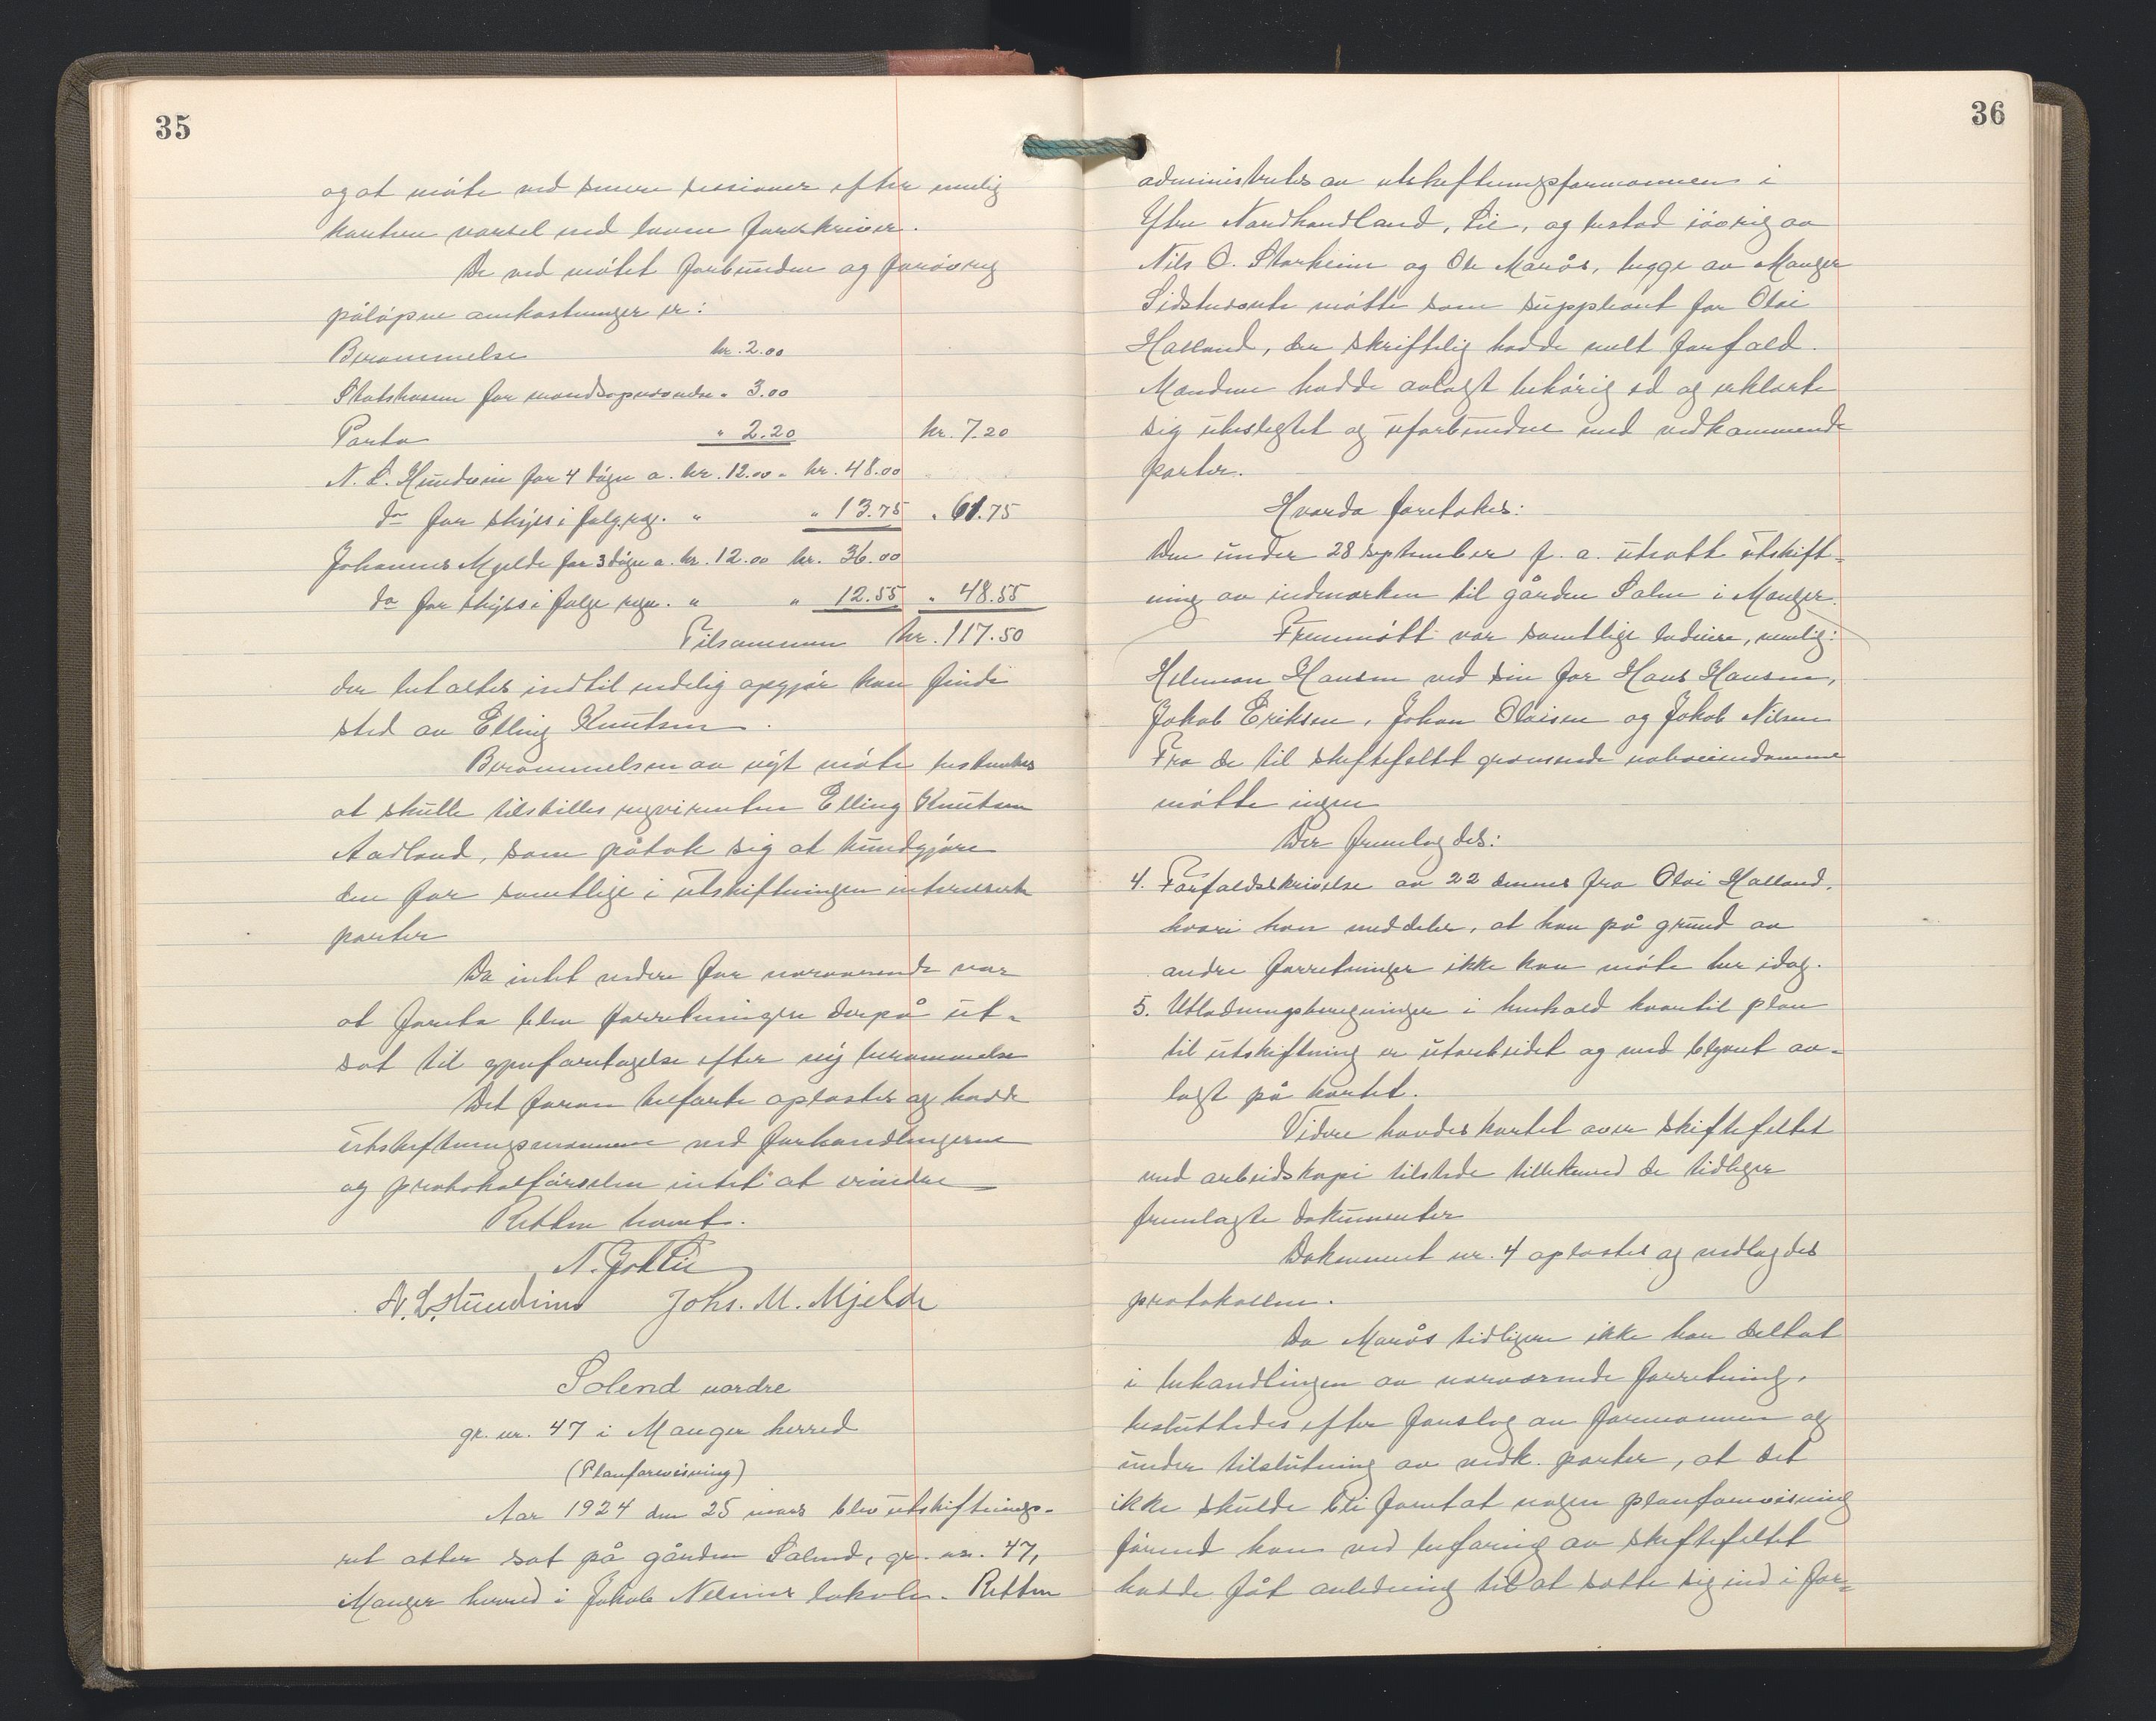 35
og at møte ved senere sessioner efter mulig
kortere varsel end loven foreskriver.
De ved møtet forbundne og forøvrig
påløpne omkostninger er:
Berammelse kr. 2.00
Statskassen for mandsopnævnelse " 3.00
Porto " 2.20 kr. 7.20
N. L. Hundvin for 4 døgn a. kr. 12.00 " kr. 48.00
do for skyss i følg. reg. " " 13.75 " 61.75
Johannes Mjelde for 3 døgn a. kr. 12.00 kr. 36.00
do for skyss i følge regn. " " 12.55 " 48.55
Tilsammen kr. 117.50
der betaltes indtil endelig opgjør kan finde
sted av Elling Knutsen.
Berammelsen av nyt møte besluttes
at skulle tilstilles rekvirenten Elling Knutsen
Aadland, som påtok sig at kundgjøre
den for samtlige i utskiftningen interesserte
parter
Da intet videre for nærværende var
at foreta blev forretningen derpå ut-
sat til gjenforetagelse efter ny berammelse
Det foran tilførte oplæstes og hadde
utskiftningsmennene ved forhandlingerne
og protokolførselen intet at erindre
Retten hævet.
N. J. Lie
N. L. Hundvin Johs. M. Mjelde
Solend nordre
gr. nr. 47 i Manger herred
(Planforevisning)
Aar 1924 den 25 mars blev utskiftnings-
ret atter sat på gården Solend, gr. nr. 47,
Manger herred i Jakob Nilsens lokale. Retten
36
administrertes av utskiftningsformannen i
Ytre Nordhordland, Lie, og bestod iøvrig av
Nils O. Storheim og Ole Marøs, begge av Manger
Sidstnævnte møtte som suppleant for Olai
Halland, der skriftelig hadde meldt forfald.
Mændene hadde avlagt behørig ed og erklærte
sig ubeslegtet og uforbundne med vedkommende
parter.
Hvorda foretokes:
Den under 28 september f. a. utsatte utskift-
ning av indmarken til gården Solen i Manger.
Fremmøtt var samtlige lodeiere, nemlig:
Hilman Hansen ved sin far Hans Hansen,
Jakob Eriksen, Johan Olaisen og Jakob Nilsen
Fra de til skiftefeltet grænsende naboeiendomme
møtte ingen
Der fremlagdes:
4. Forfaldsskrivelse av 22 dennes fra Olai Halland,
hvori han meddeler, at han på grund av
andre forretninger ikke kan møte her idag.
5. Utlodningsberegninger i henhold hvortil plan
til utskiftning er utarbeidet og med blyant av-
lagt på kartet.
Videre havdes kartet over skiftefeltet
med arbeidskopi tilstede tillikemed de tidligere
fremlagte dokumenter
Dokument nr. 4 oplæstes og vedlagdes
protokollen.
Da Marøs tidligere ikke har deltat
i behandlingen av nærværende forretning,
besluttedes efter forslag av formannen og
under tilslutning av vedk. parter, at det
ikke skulde bli foretat nogen planforevisning
førend han ved befaring av skiftefeltet
hadde fåt anledning til at sætte sig ind i for-